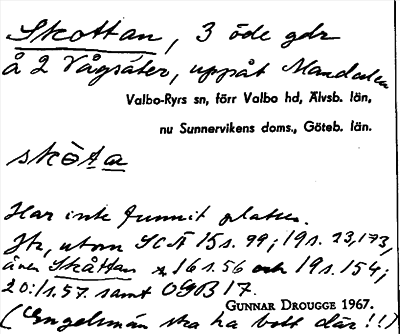 Skottan, 3 öde gdr
å 2 Vågsäter, uppåt Mandalen
Valbo-Ryrs sn, förr Valbo hd, Älvsb. län,
nu Sunnervikens doms., Göteb. län.
skòta
Har inte funnit platsen.
Jfr, utom SOÄ 15 s. 99; 19 s. 23, 173,
även Skåttan i 16 s. 56 och 19 s. 154;
20:1 s. 57. samt OGB 17.
GUNNAR DROUGGE 1967.
(Engelsmän ska ha bott där!!)